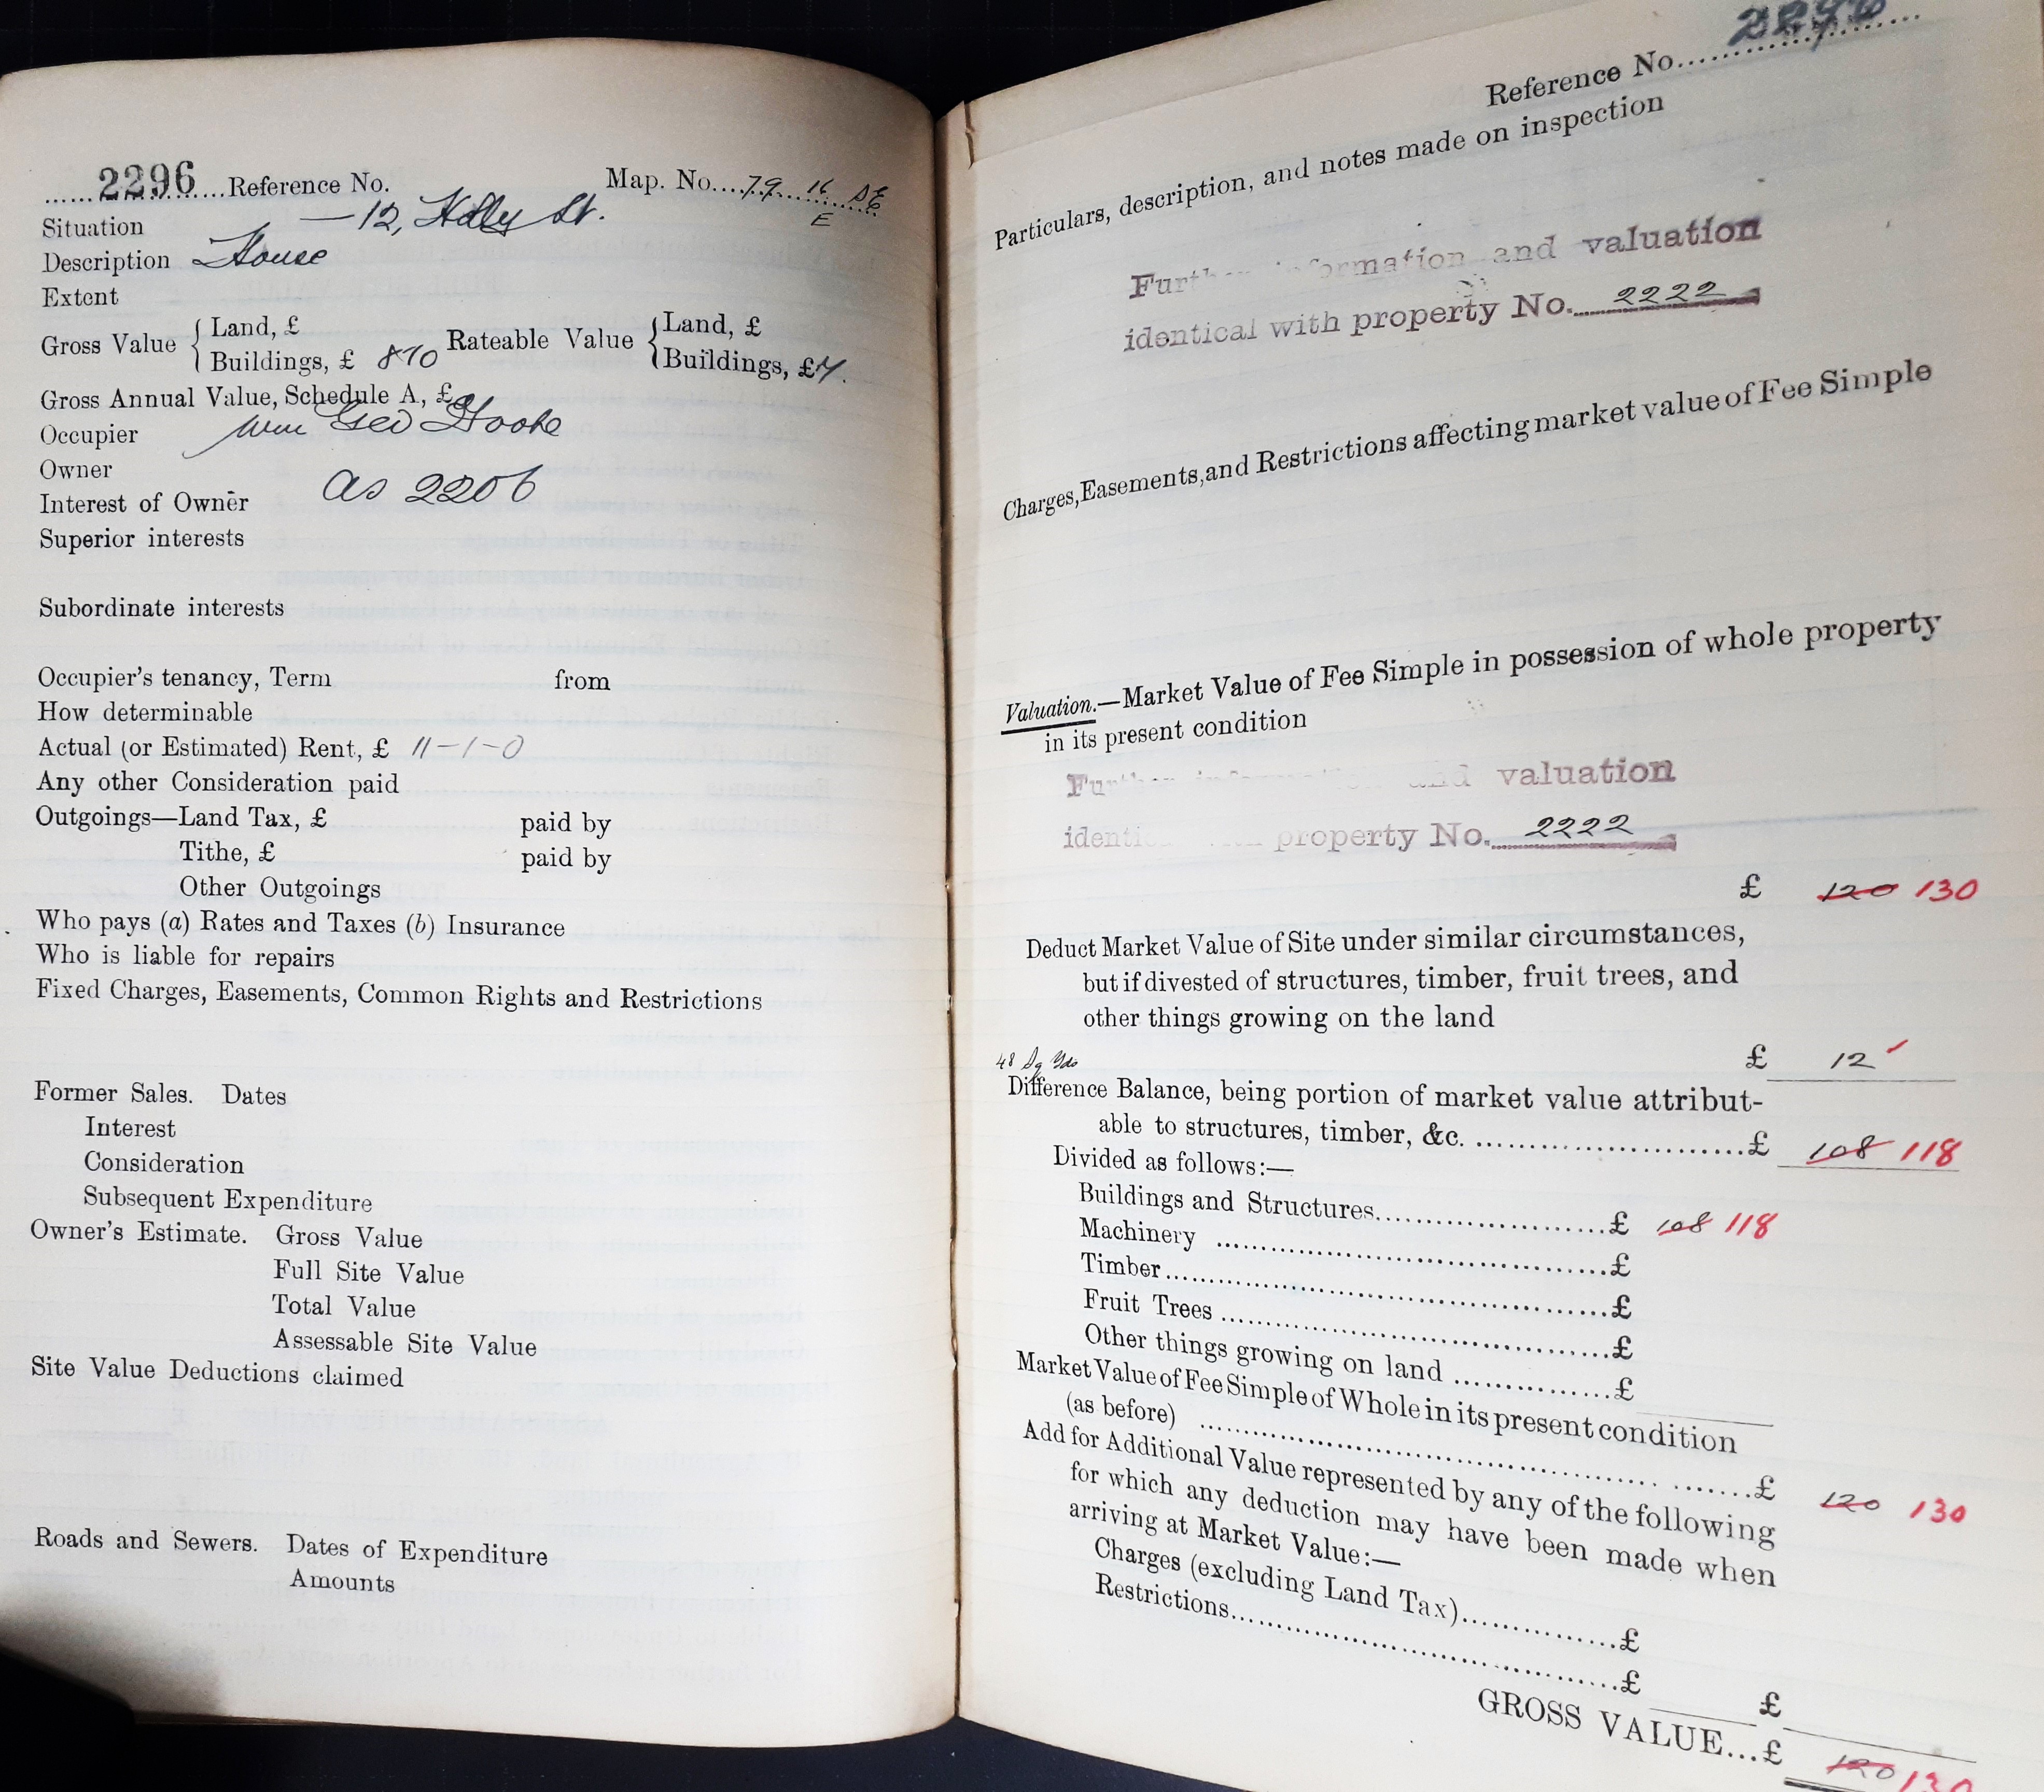 2296 Reference No. Map. No. 79 16 SE
E
Situation — 12, Holly St.
Description House
Extent
Gross Value { Land, £ Rateable Value { Land, £
Buildings, £ 8 Buildings, £
Gross Annual Value, Schedule A, £
Occupier Wm Geo
Owner
Interest of Owner as 2206
Superior interests
Subordinate interests
Occupier's tenancy, Term from
How determinable
Actual (or Estimated) Rent, £ 11-1-0
Any other Consideration paid
Outgoings—Land Tax, £ paid by
Tithe, £ paid by
Other Outgoings
Who pays (a) Rates and Taxes (b) Insurance
Who is liable for repairs
Fixed Charges, Easements, Common Rights and Restrictions
Former Sales. Dates
Interest
Consideration
Subsequent Expenditure
Owner's Estimate. Gross Value
Full Site Value
Total Value
Assessable Site Value
Site Value Deductions claimed
Roads and Sewers. Dates of Expenditure
Amounts
Reference No. 2296
Particulars, description, and notes made on inspection
Further information and valuation
identical with property No. 2222
Charges, Easements, and Restrictions affecting market value of Fee Simple
Valuation.—Market Value of Fee Simple in possession of whole property
in its present condition
Further information and valuation
identical with property No. 2222
£ 120 130
Deduct Market Value of Site under similar circumstances,
but if divested of structures, timber, fruit trees, and
other things growing on the land
£ 12
48 Sq Yds
Difference Balance, being portion of market value attribut-
able to structures, timber, &c. £ 108 118
Divided as follows:—
Buildings and Structures £ 108 118
Machinery £
Timber £
Fruit Trees £
Other things growing on land £
Market Value of Fee Simple of Whole in its present condition
(as before) £ 120 130
Add for Additional Value represented by any of the following
for which any deduction may have been made when
arriving at Market Value:—
Charges (excluding Land Tax) £
Restrictions £
£
GROSS VALUE...£ 120 130